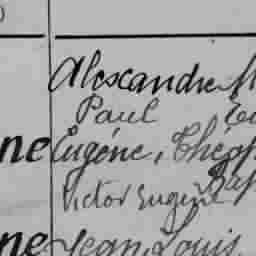 Alexandre
Paul
ne Eugéne, Théop
Victor Eugène Bap
ne Jean, Louis